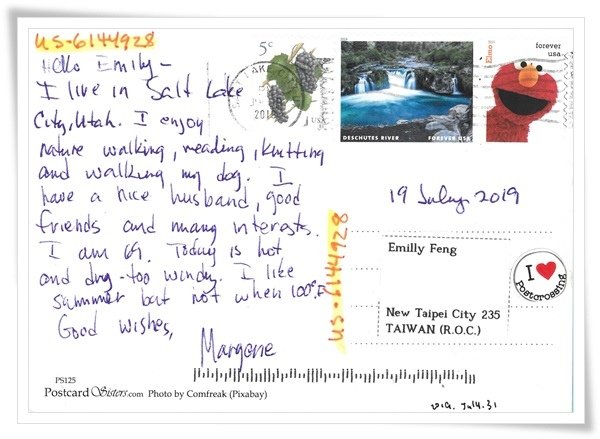 US-6144928
Hello Emily -
I live in Salt Lake
City, Utah. I enjoy
nature walking, reading, knitting
and walking my dog. I
have a nice husband, good
friends and many interests.
I am 69. Today is hot
and dry - too windy. I like
summer but not when 100°F
Good wishes,
Margene
PS125
Postcard Sisters.com Photo by Comfreak (Pixabay)
5¢
USA
DESCHUTES RIVER FOREVER USA
Elmo
forever
usa
19 July 2019
US-6144928
Emilly Feng
New Taipei City 235
TAIWAN (R.O.C.)
I ♥
Postcrossing
2019. Jul4.31